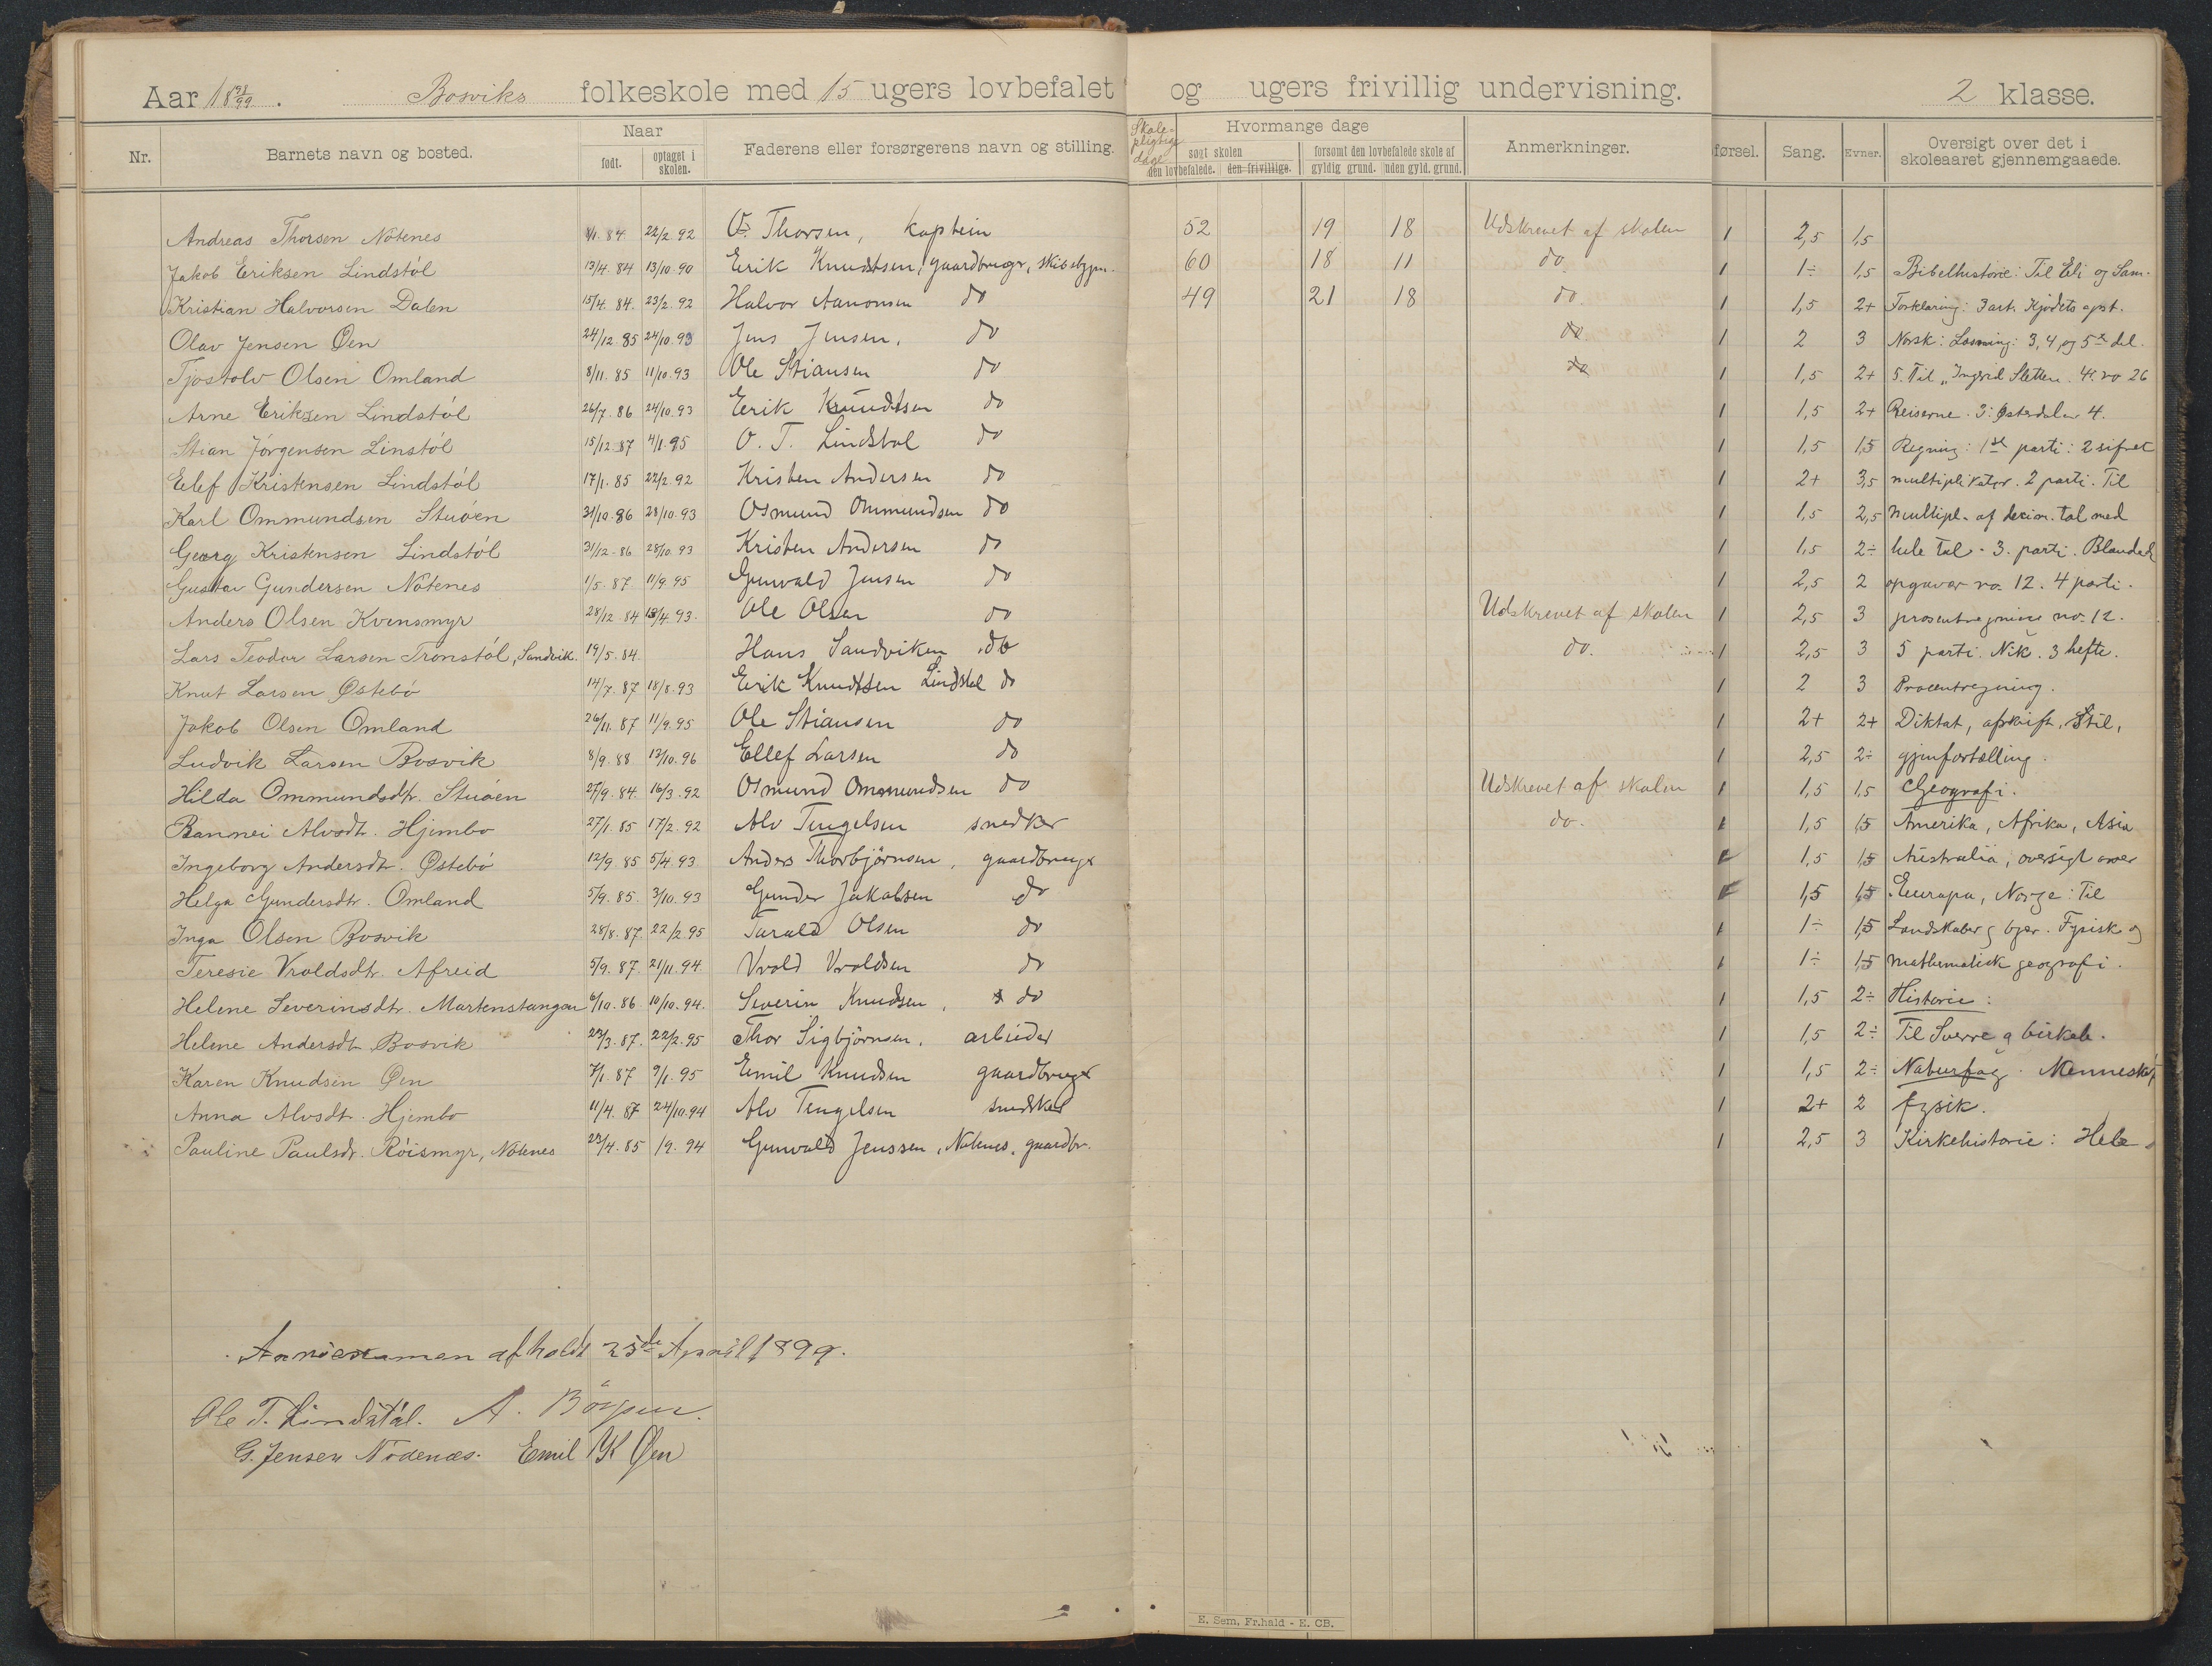 Aar 18 98/99. Bosviks folkeskole med 15 ugers lovbefalet og ugers frivillig undervisning. 2 klasse.
Nr. Barnets navn og bosted. Naar født. optaget i skolen. Faderens eller forsørgerens navn og stilling. Skole-pligtige dage Hvormange dage søgt skolen den lovbefalede. den frivillige. forsømt den lovbefalede skole af gyldig grund. uden gyld. grund. Anmerkninger. førsel. Sang. Evner. Oversigt over det i skoleaaret gjennemgaaede.
Andreas Thorsen Nótenes 84 22/2.92 O. Thorsen, kaptein 52 19 18 Udskrevet af skolen 1 2,5 1,5
Jakob Eriksen Lindstól 13/4.84 13/10.90 Erik Knudtsen, gaardbruger, skibsbygm. 60 18 11 do 1 1÷ 1,5 Bibelhistorie: Til Eli og Sam.
Kristian Halvorsen Dalen 15/4.84. 23/2.92 Halvor Aanonsen do 49 21 18 do. 1 1,5 2+ Forklaring: 3 art. Kjødets opst.
Olav Jensen Øen 24/12.85 24/10.93 Jens Jensen. do do 1 2 3 Norsk: Læsning: 3, 4 og 5te del.
Tjostolv Olsen Omland 8/11.85 11/10.93 Ole Stiansen do do 1 1,5 2+ 5. Til "Ingerid Sletten. 4. no 26
Arne Eriksen Lindstól 26/7.86 24/10.93 Erik Knudtsen do 1 1,5 2+ Reiserne. 3: Østerdalen 4.
Stian Jórgensen Linstól 15/12.87 4/1.95 O. T. Lindstøl do 1 1,5 1,5 Regning: 1ste parti: 2 sifret
Elef Kristensen Lindstól 17/1.85 22/2.92 Kristen Andersen do 1 2+ 3,5 multiplikator. 2 parti. Til
Karl Ommundsen Stuóen 31/10.86 28/10.93 Osmund Ommundsen do 1 1,5 2,5 Multipl. af decim. tal med
Georg Kristensen Lindstól 31/12.86 28/10.93 Kristen Andersen do 1 1,5 2÷ hele tal. 3. parti. Blandede
Gustav Gundersen Nótenes 1/5.87 11/9.95 Gunvald Jensen do 1 2,5 2 opgaver no. 12. 4 parti.
Anders Olsen Kvensmyr 28/12.84 13/4.93. Ole Olsen do Udskrevet af skolen 1 2,5 3 prosentregning no. 12.
Lars Teodor Larsen Tronstól, Sandvik. 19/5.84. Hans Sandviken do do. 1 2,5 3 5 parti. Nik. 3 hefte.
Knut Larsen Østebó 14/7.87 18/8.93 Erik Knudtsen Lindstøl do 1 2 3 Procentregning.
Jakob Olsen Omland 26/11.87 11/9.95 Ole Stiansen do 1 2+ 2+ Diktat, afskrift, Stil,
Ludvik Larsen Bosvik 8/9.88 13/10.96 Ellef Larsen do 1 2,5 2÷ gjenfortælling.
Hilda Ommundsdtr. Stuóen 27/9.84. 16/3.92 Osmund Ommundsen do Udskrevet af skolen 1 1,5 1,5 Geografi.
Rannei Alvsdt. Hjembo 27/1.85 17/2.92 Alv Tengelsen snedker do. 1 1,5 1,5 Amerika, Afrika, Asia
Ingeborg Andersdtr. Østebó 12/9.85 5/4.93 Anders Thorbjörnsen, gaardbruger 1,5 1,5 Australia, oversigt over
Helga Gundersdtr. Omland 5/9.85. 3/10.93 Gunder Jakobsen do 1,5 1,5 Europa, Norge: Til
Inga Olsen Bosvik 28/8.87 22/2.95 Tarald Olsen do 1 1÷ 1,5 Landskaber og byer. Fysisk og
Teresie Vroldsdtr. Afreid 5/9.87. 21/11.94. Vrold Vroldsen do 1 1÷ 1,5 mathematisk geografi.
Helene Severinsdtr. Martenstangen 6/10.86. 10/10.94. Severin Knudsen, do 1 1,5 2÷ Historie:
Helene Andersdt. Bosvik 22/3.87. 22/2.95 Thor Sigbjörnsen, arbeider 1 1,5 2÷ Til Sverre og birkeb.
Karen Knudsen Øen 7/1.87 9/1.95 Emil Knudsen gaardbruger 1 1,5 2÷ Naturfag. Mennesket,
Anna Alvsdt. Hjembo 11/4.87 24/10.94 Alv Tengelsen snedker 1 2+ 2 fysik.
Pauline Paulsdr. Róismyr, Nótenes 22/4.85 1/9.94 Gunvald Jenssen, Nótenes, gaardbr. 1 2,5 3 Kirkehistorie: Hele
Aarsexamen afholdt 25de April 1899.
Ole T. Lindstøl. A.
G. Jensen Nódenæs. Emil K Øen
E. Sem. Fr.hald - E. CB.